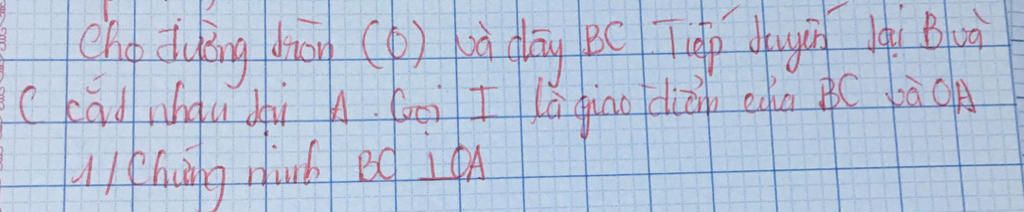 Cho đường tròn (O) và dây BC Tiếp tuyến tại B và
C cắt nhau tại A. Gọi I là giao điểm của BC và OA
1/ Chứng minh BC ⊥ OA